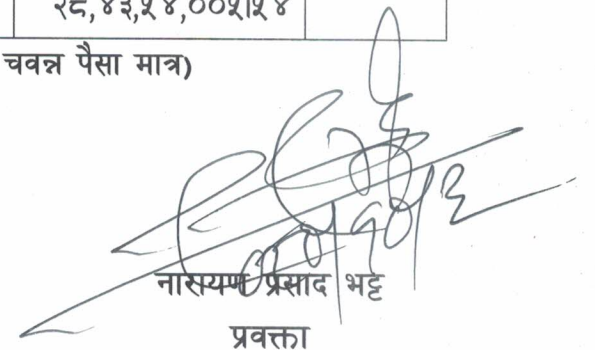 २८,४३,५४,००५।५४
चवन्न पैसा मात्र)
नारायण प्रसाद भट्ट
प्रवक्ता